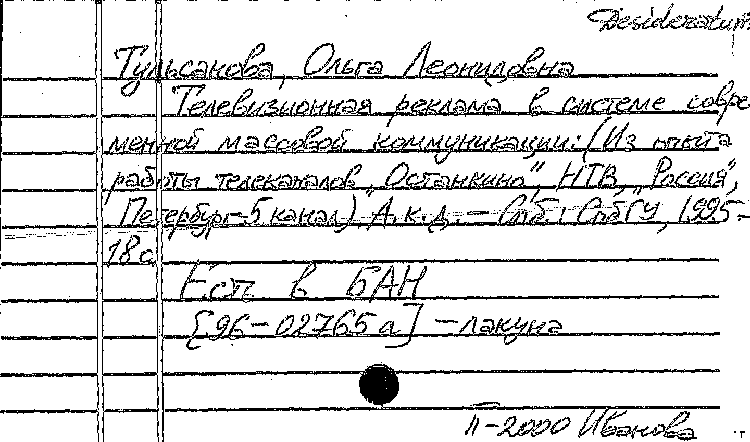 Desideratum
Тульсанова, Ольга Леонидовна
Телевизионная реклама в системе совре
менной массовой коммуникации: (Из опыта
работы телеканалов „Останкино", НТВ, „Россия",
Петербург-5 канал) А.к.д. - Спб.: СПбГУ, 1995-
18с
Есть в БАН
[96-02765а] - лакуна
II-2000 Иванова